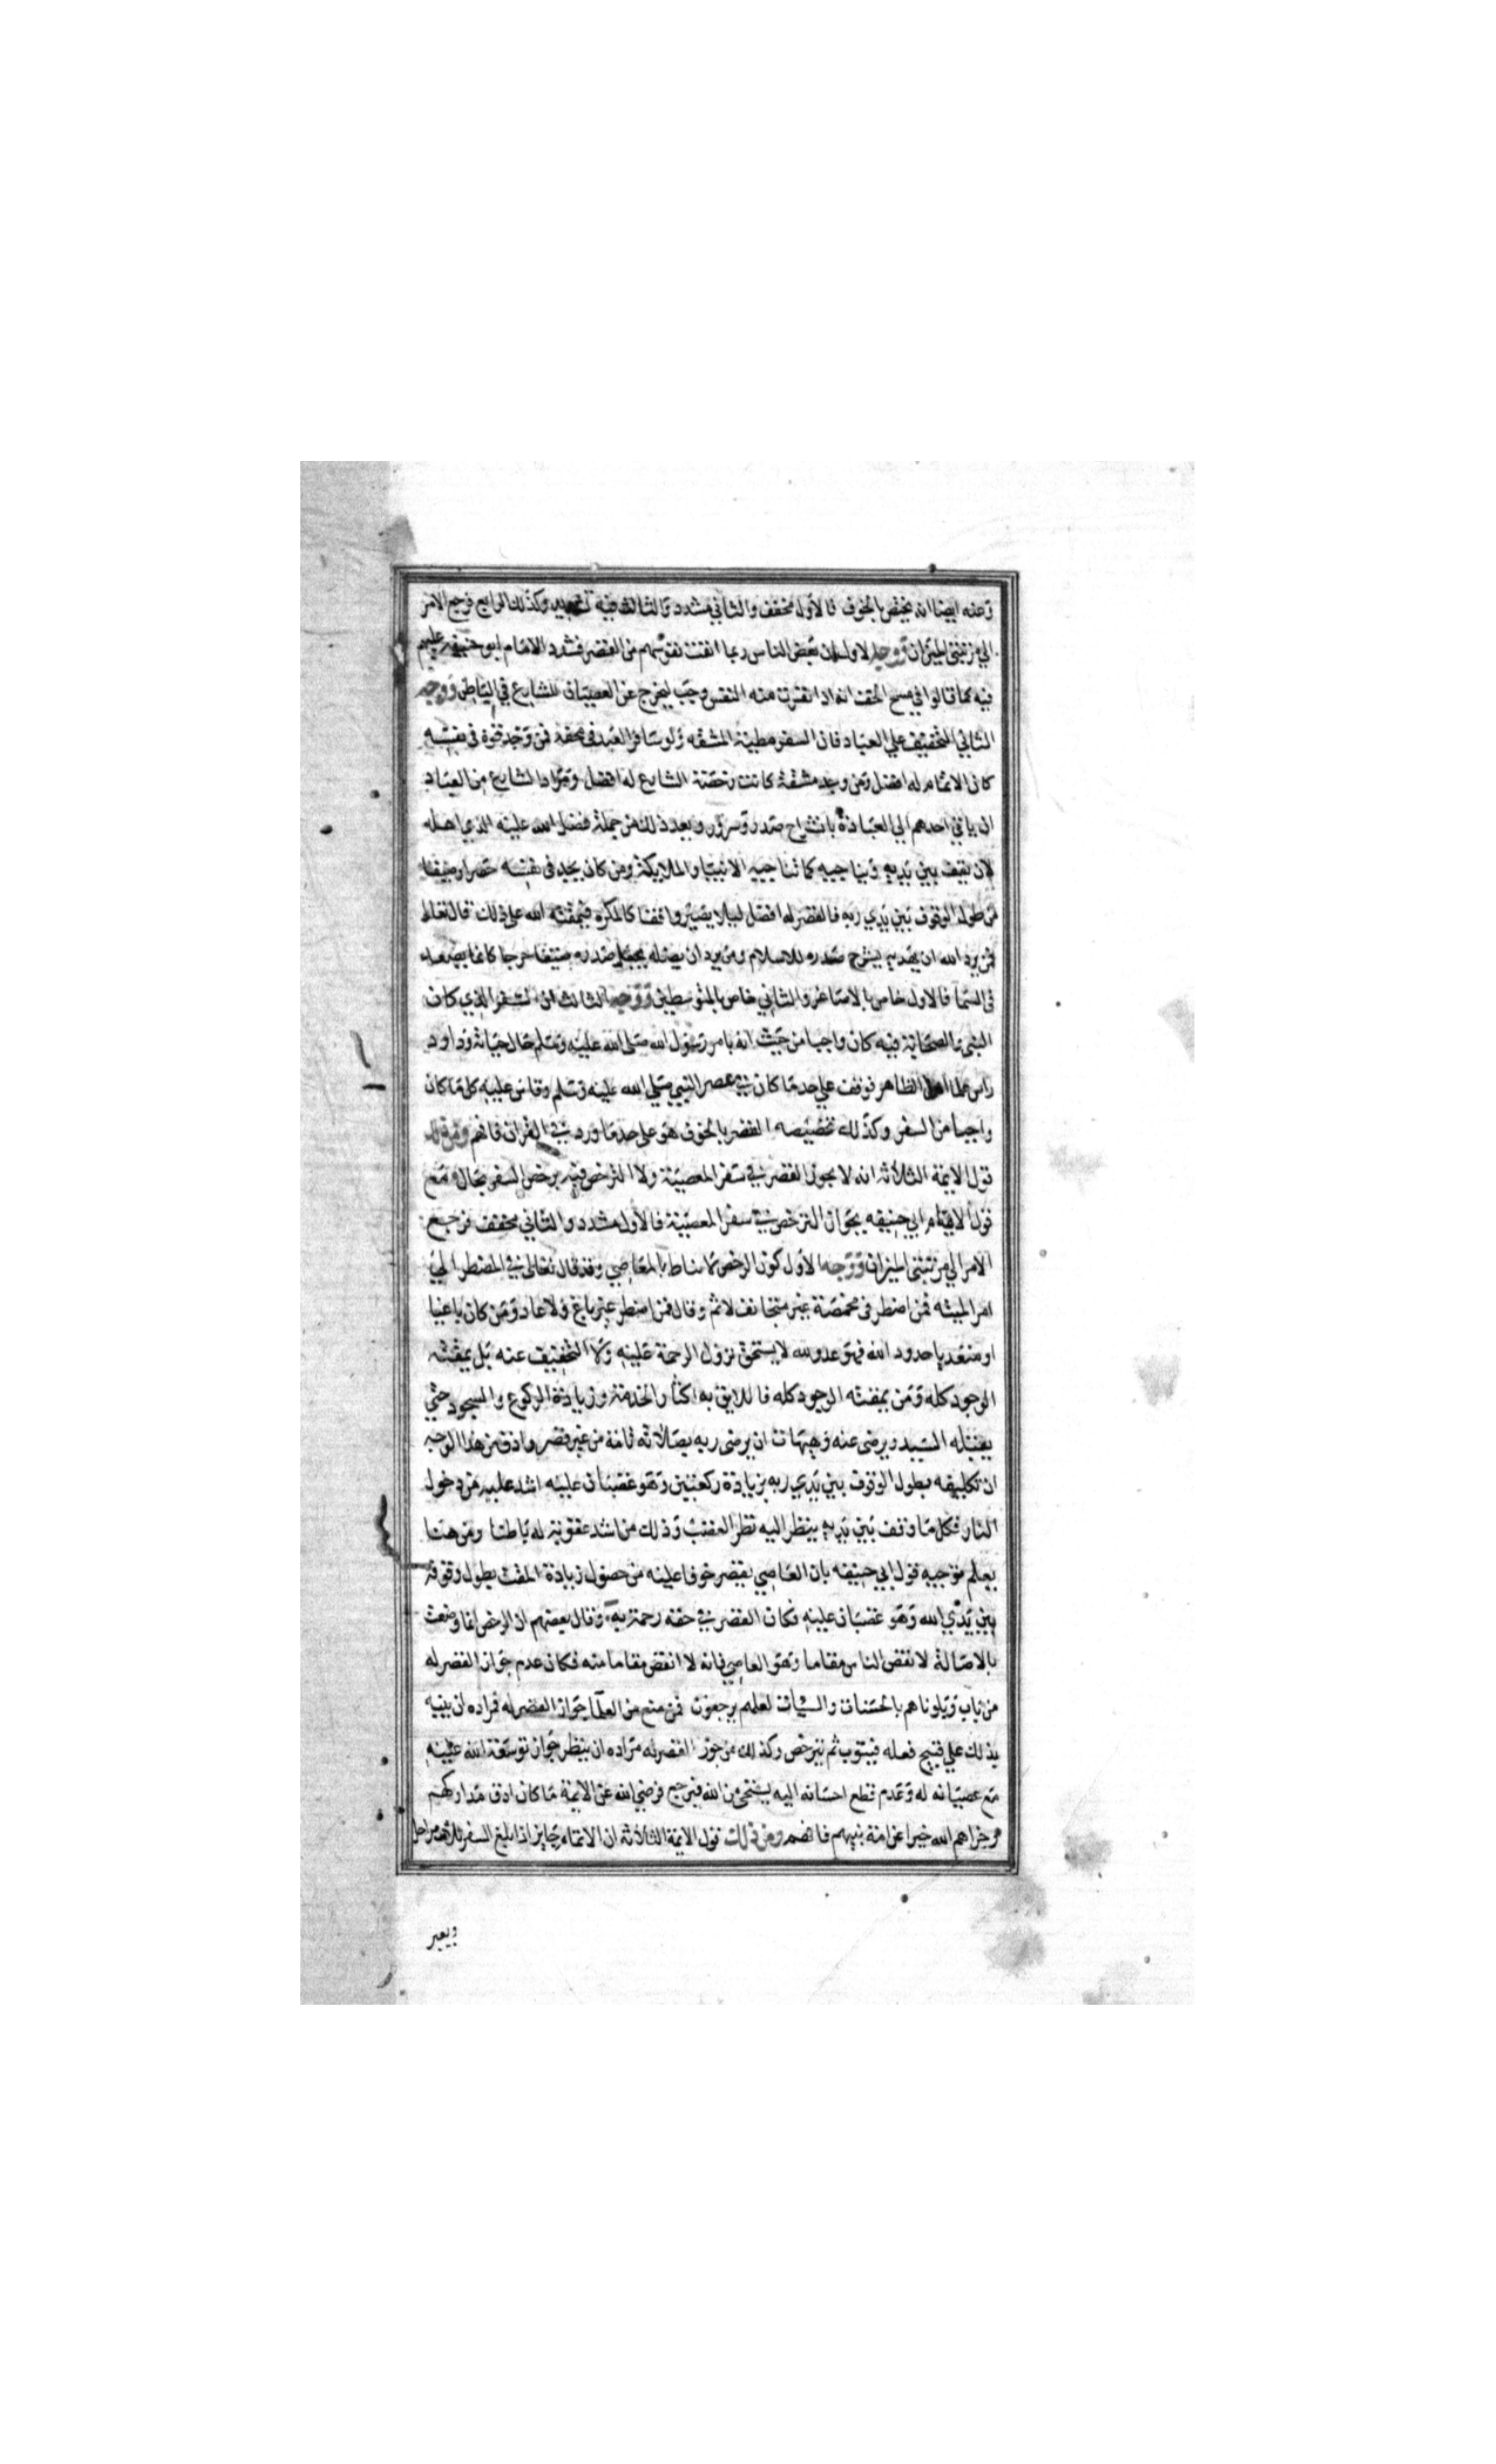 وعنه ايضا انه يختص بالخوف فالاول مخفف والثاني مشدد والثالث فيه تشديد وكذلك الرابع فرجع الامر
الى مرتبتى الميزان ووجه الاول ان بعض الناس ربما انفت نفوسهم من القصر فشدد الامام ابو حنيفه عليهم
فيه كما قالوا في مسح الخف انه اذا نفرت منه النفس وجب ليخرج عن العصيان للشارع في الباطن ووجه
الثاني التخفيف علي العباد فان السفر مطية المشقه ولو سافر العبد في محفة فمن وجد قوة في نفسه
كان الاتمام له افضل ومن وجد مشقة كانت رخصة الشارع له افضل ومراد الشارع من العباد
ان ياتي احدهم الي العبادة بانشراح صدر وسرور ويعد ذلك من جملة فضل الله عليه الذي اهله
لان يقف بين يديه ويناجيه كما تناجيه الانبيا والملايكة ومن كان يجد في نفسه حصرا وضيقا
من طول الوقوف بين يدي ربه فالقصر له افضل ليلا يصير واقفا كالمكره فيمقته الله على ذلك قال تعالى
فمن يرد الله ان يهديه يشرح صدره للاسلام ومن يرد ان يضله يجعل صدره ضيقا حرجا كانما يصعد
في السما فالاول خاص بالاصاغر والثاني خاص بالمتوسطين ووجه الثالث ان السفر الذي كان
النبي والصحابة فيه كان واجبا من حيث انه بامر رسول الله صلى الله عليه وسلم حال حياته وداود
راس علما اهل الظاهر فوقف علي حد ما كان في عصر النبي صلي الله عليه وسلم وقاس عليه كل ما كان
واجبا من السفر وكذلك تخصيصه القصر بالخوف هو على حد ما ورد في القران فافهم ومن ذلك
قول الايمة الثلاثه انه لا يجوز القصر في سفر المعصية ولا الترخص فيه برخص السفر بحال مع
قول الامام ابي حنيفه بجواز الترخص في سفر المعصية فالاول مشدد والثاني مخفف فرجع
الامر الي مرتبتى الميزان ووجه الاول كون الرخص لا تناط بالمعاصي وقد قال تعالى في المضطر الي
اكل الميته فمن اضطر في مخمصة غير متجانف لاثم وقال فمن اضطر غير باغ ولا عاد ومن كان باغيا
او متعديا حدود الله فهو عدو لله لا يستحق نزول الرحمة عليه ولا التخفيف عنه بل يمقته
الوجود كله ومن يمقته الوجود كله فاللايق به اكثار الخدمة وزيادة الركوع والسجود حتي
يقبله السيد ويرضى عنه وهيهات ان يرضى ربه بصلاته تامة من غير قصر وادق من هذا الوجه
ان تكليفه بطول الوقوف بين يدي ربه بزيادة ركعتين وهو غضبان عليه اشد عليه من دخول
النار فكل ما وقف بين يديه ينظر اليه نظر الغضب وذلك من اشد عقوبة له باطنا ومن هنا
يعلم توجيه قول ابي حنيفه بان العاصي يقصر خوفا عليه من حصول زيادة المقت بطول وقوفه
بين يدي الله وهو غضبان عليه فكان القصر في حقه رحمة به وقال بعضهم ان الرخص انما وضعت
بالاصالة لانقص الناس مقاما وهو العاصي فانه لا انقص مقاما منه فكان عدم جواز القصر له
من باب وبلوناهم بالحسنات والسيات لعلهم يرجعون فمن منع من العلما جواز القصر له فمراده ان ينبه
بذلك علي قبيح فعله فيتوب ثم يترخص وكذلك من جوز القصر له مراده ان ينظر جواز توسعة الله عليه
مع عصيانه له وعدم قطع احسانه اليه يستحى من الله فيرجع فرضي الله عن الايمة ما كان ادق مداركهم
وجزاهم الله خيرا عن امة نبيهم فافهم ومن ذلك قول الايمة الثلاثه ان الاتمام جايز اذا بلغ السفر ثلاث مراحل